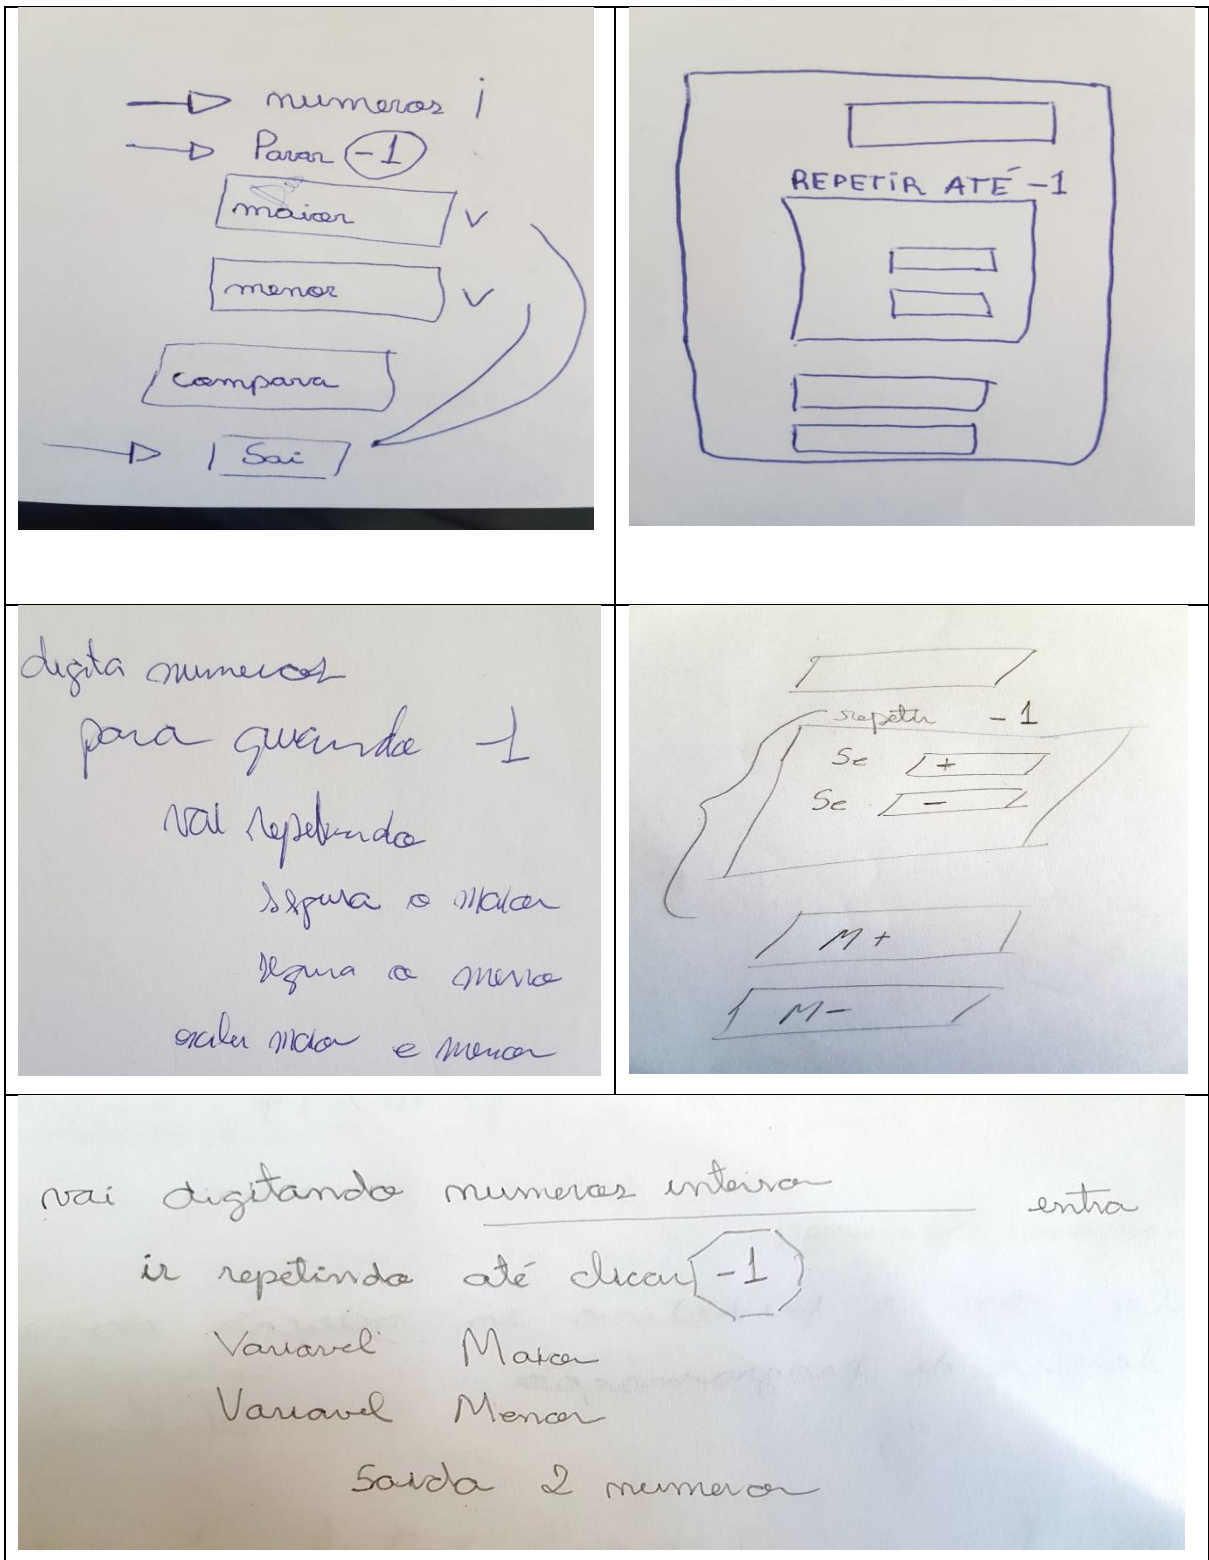 numeros i
Parar -1
maior v
menor v
compara
Sai
REPETIR ATÉ -1
digita numeros
para quando -1
vai repetindo
segura o maior
segura o menor
exibir maior e menor
repetir -1
Se +
Se -
M+
M-
vai digitando numeros inteiros entra
ir repetindo até clicar -1
Variavel Maior
Variavel Menor
Saida 2 numeros